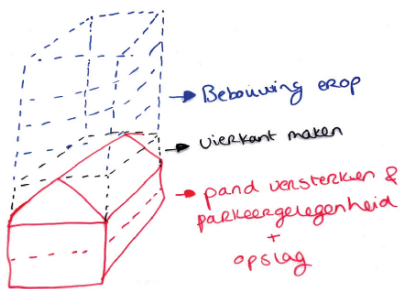 Bebouwing erop
vierkant maken
pand versterken &
parkeergelegenheid
+
opslag